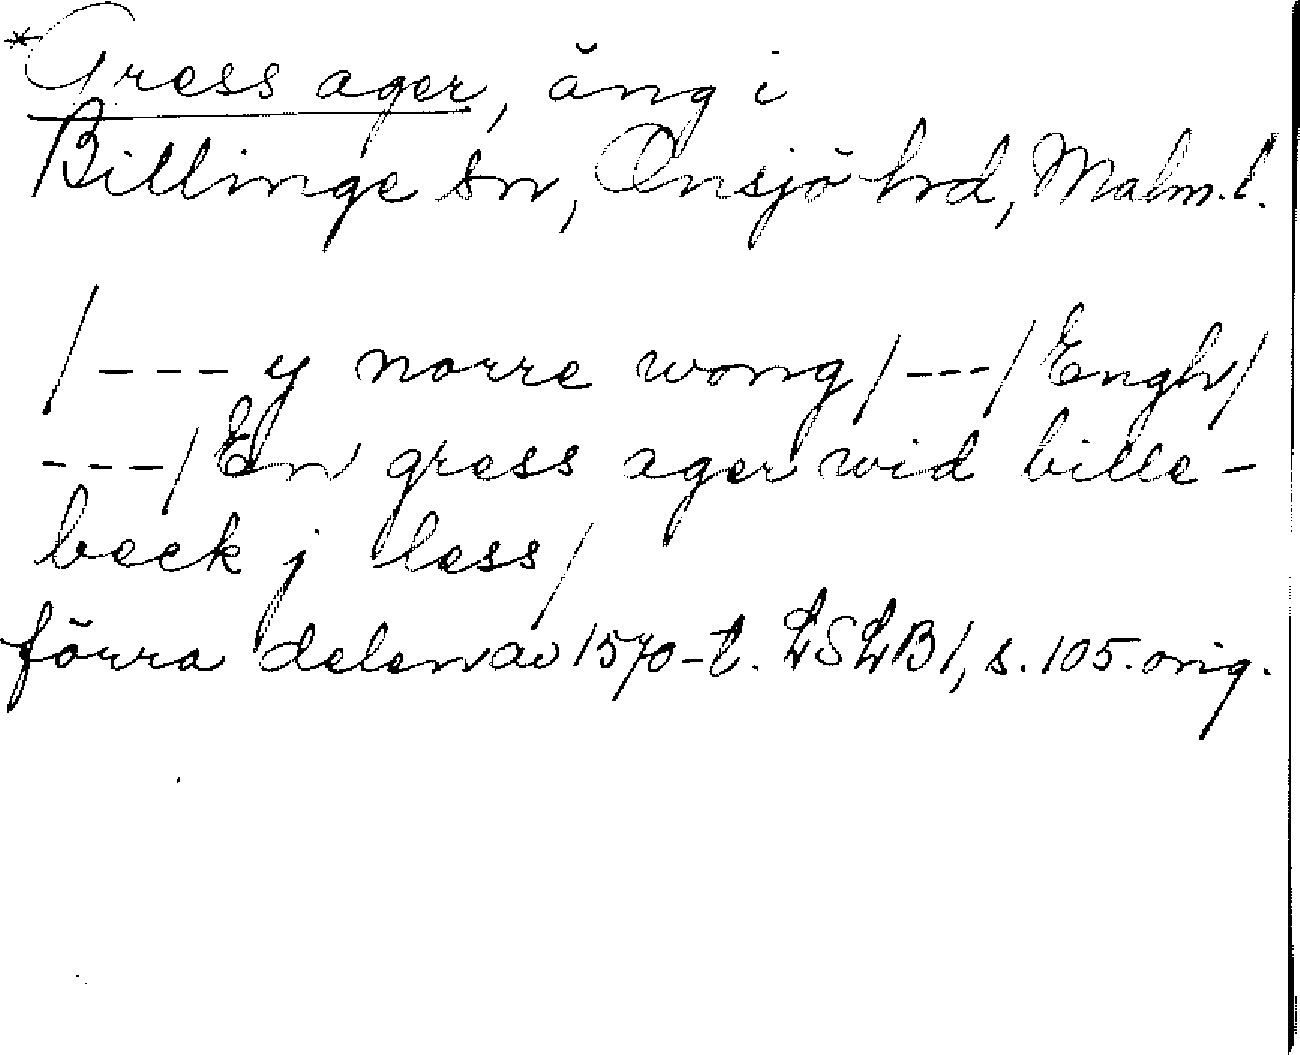 *Gress ager, äng i
Billinge sn, Onsjö hrd, Malm. l.
/--- y norre wong/---/Engh/
---/En gress ager wid bille-
beck j less/
förra delen av 1570-t. LSLB1, s. 105. orig.